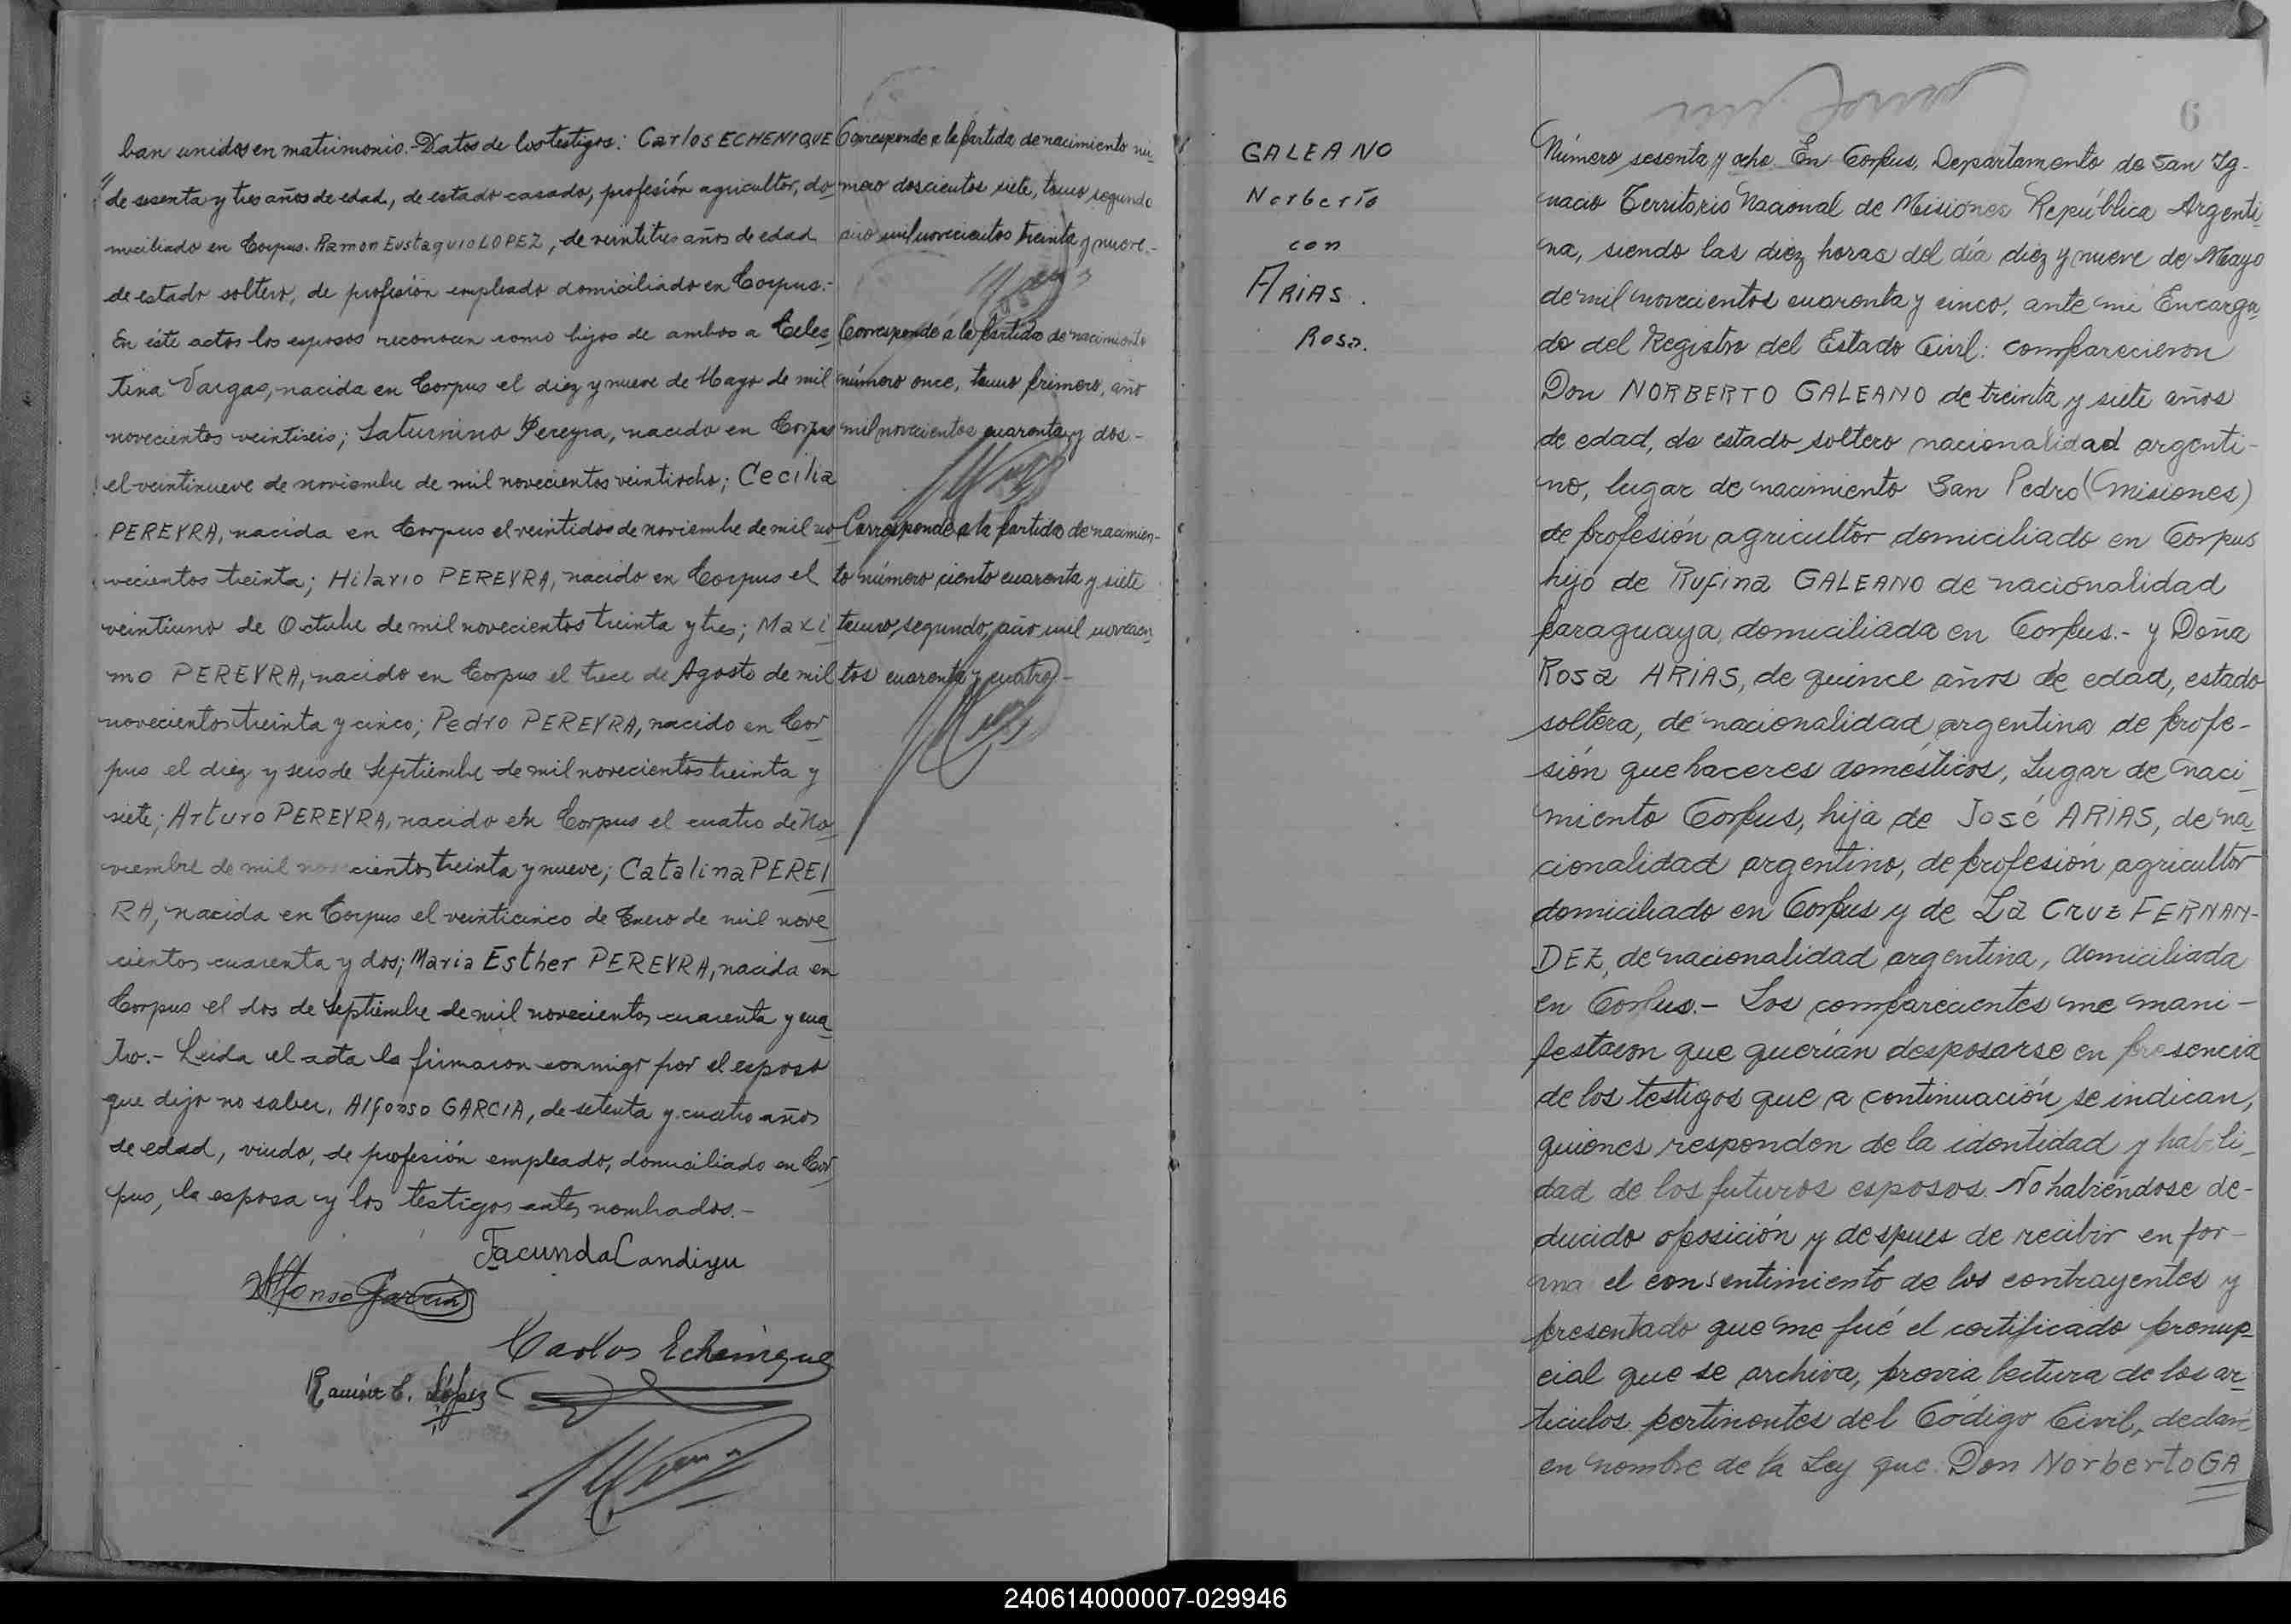 ban unidos en matrimonio.- Datos de los testigos: Carlos ECHENIQUE
de sesenta y tres años de edad, de estado casado, profesión agricultor, do
miciliado en Corpus. Ramon Eustaquio LOPEZ, de veintitres años de edad
de estado soltero, de profesión empleado domiciliado en Corpus.-
En éste actos los esposos reconocen como hijos de ambos a Celes
tina Vargas, nacida en Corpus el diez y nueve de Mayo de mil
novecientos veintiseis; Saturnino Pereyra, nacido en Corpus
el veintinueve de noviembre de mil novecientos veintiocho; Cecilia
PEREYRA, nacida en Corpus el veintidos de noviembre de mil no
vecientos treinta; Hilario PEREYRA, nacido en Corpus el
veintiuno de Octubre de mil novecientos treinta y tres; Maxi
mo PEREYRA, nacido en Corpus el trece de Agosto de mil
novecientos treinta y cinco; Pedro PEREYRA, nacido en Cor
pus el diez y seis de Septiembre de mil novecientos treinta y
siete; Arturo PEREYRA, nacido en Corpus el cuatro de No
viembre de mil novecientos treinta y nueve; Catalina PEREI
RA, nacida en Corpus el veinticinco de Enero de mil nove
cientos cuarenta y dos; Maria Esther PEREYRA, nacida en
Corpus el dos de Septiembre de mil novecientos cuarenta y cua
tro.- Leida el acta la firmaron conmigo por el esposo
que dijo no saber, Alfonso GARCIA, de setenta y cuatro años
de edad, viudo, de profesión empleado, domiciliado en Cor
pus, la esposa y los testigos antes nombrados.-
Facunda Candiyu
Alfonso Garcia
Carlos Echenique
Ramón E. López
Corresponde a la partida de nacimiento nú-
mero doscientos siete, tomo segundo
año mil novecientos treinta y nueve.-
Corresponde á la partida de nacimiento
número once, tomo primero, año
mil novecientos cuarenta y dos-
Corresponde a la partida de nacimien-
to número ciento cuarenta y siete
tomo segundo, año mil novecien
tos cuarenta y cuatro-
6
GALEANO
Norberto
con
ARIAS.
Rosa.
Número sesenta y ocho. En Corpus, Departamento de San Ig-
nacio Territorio Nacional de Misiones República Argenti
na, siendo las diez horas del día diez y nueve de Mayo
de mil novecientos cuarenta y cinco, ante mi Encarga
do del Registro del Estado Civil: comparecieron
Don NORBERTO GALEANO de treinta y siete años
de edad, de estado soltero nacionalidad argenti-
no, lugar de nacimiento San Pedro (Misiones)
de profesión agricultor domiciliado en Corpus
hijo de Rufina GALEANO de nacionalidad
paraguaya, domiciliada en Corpus.- y Doña
Rosa ARIAS, de quince años de edad, estado
soltera, de nacionalidad argentina de profe-
sión quehaceres domésticos, Lugar de naci
miento Corpus, hija de José ARIAS, de na
cionalidad argentino, de profesión agricultor
domiciliado en Corpus y de La Cruz FERNAN-
DEZ, de nacionalidad argentina, domiciliada
en Corpus.- Los comparecientes me mani-
festaron que querían desposarse en presencia
de los testigos que a continuación se indican,
quienes responden de la identidad y habili
dad de los futuros esposos. No habiéndose de-
ducido oposición y despues de recibir en for-
ma el consentimiento de los contrayentes y
presentado que me fué el certificado prenup
cial que se archiva, previa lectura de los ar
ticulos pertinentes del Código Civil, declaré
en nombre de la Ley que Don Norberto GA
240614000007-029946